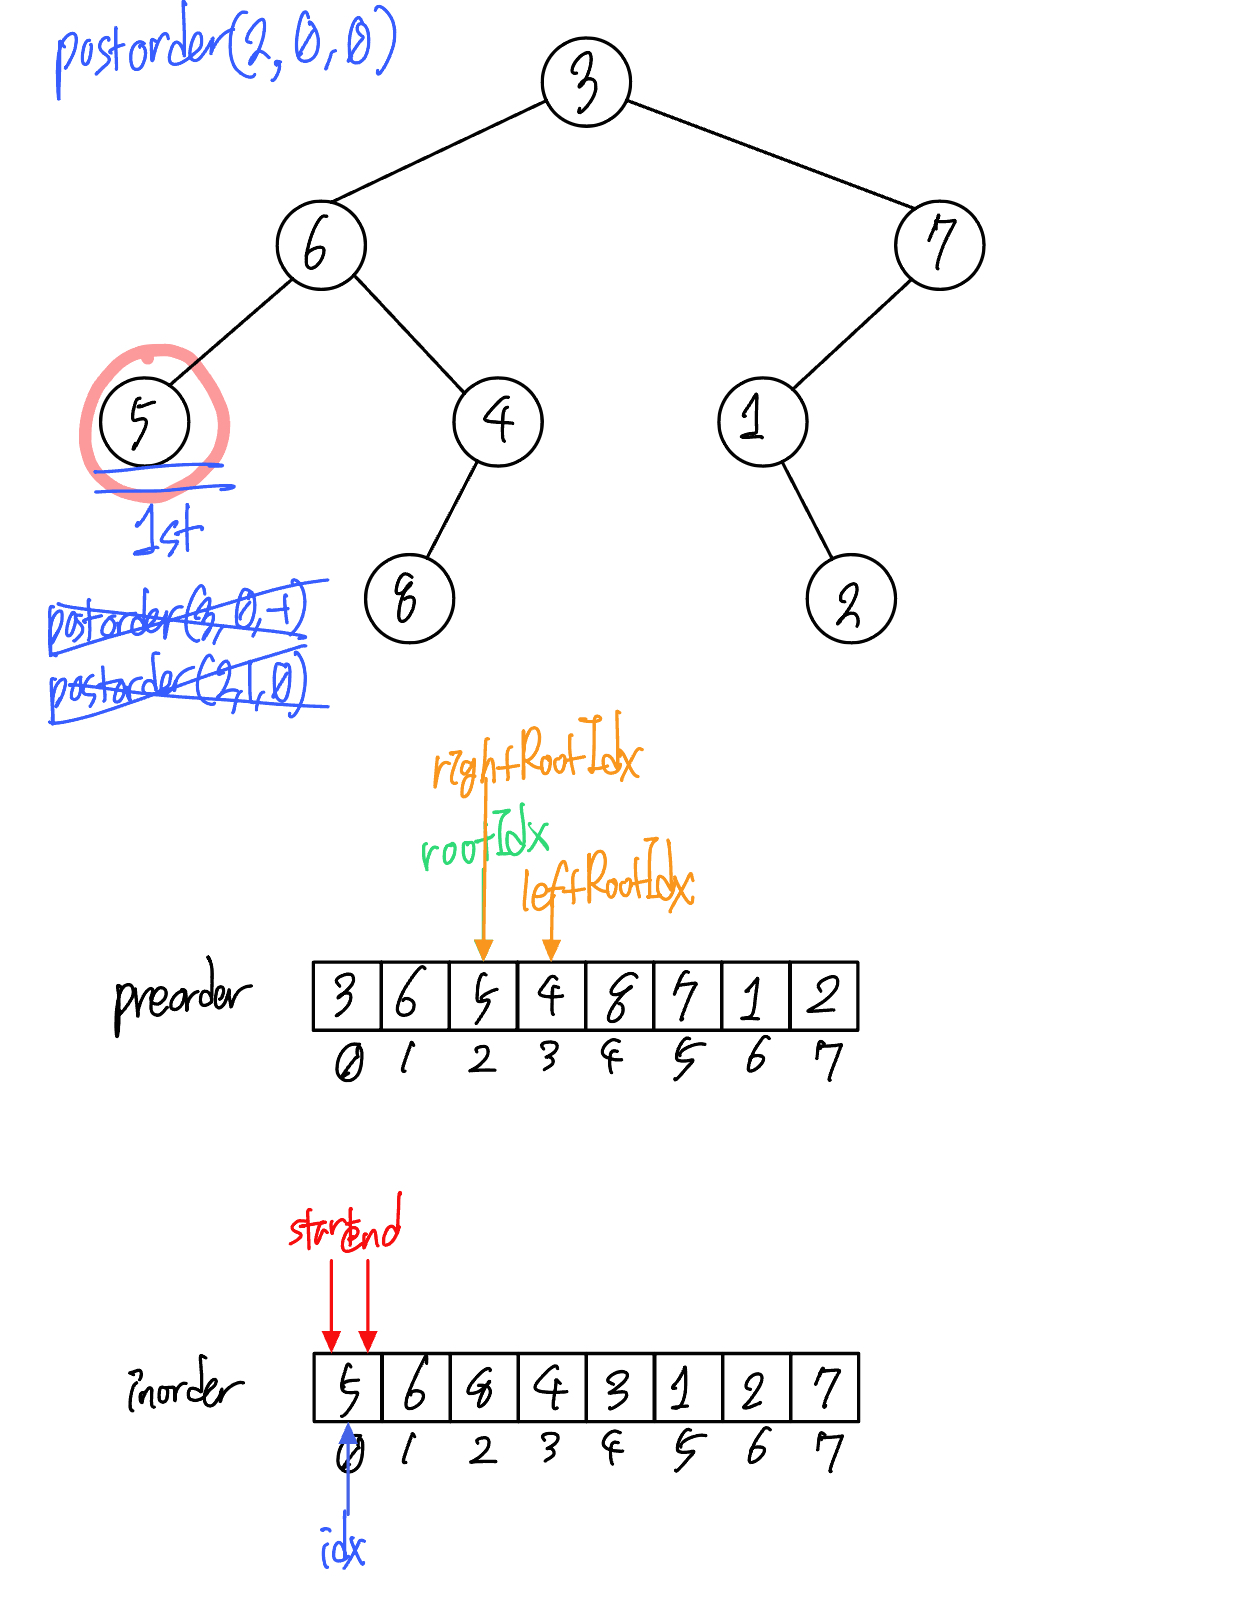 postorder(2,0,0)
3
6 7
5 4 1
1st
8 2
postorder(3,0,-1)
postorder(2,1,0)
rightRootIdx
rootIdx
leftRootIdx
preorder 3 6 5 4 8 7 1 2
0 1 2 3 4 5 6 7
start end
inorder 5 6 8 4 3 1 2 7
0 1 2 3 4 5 6 7
idx